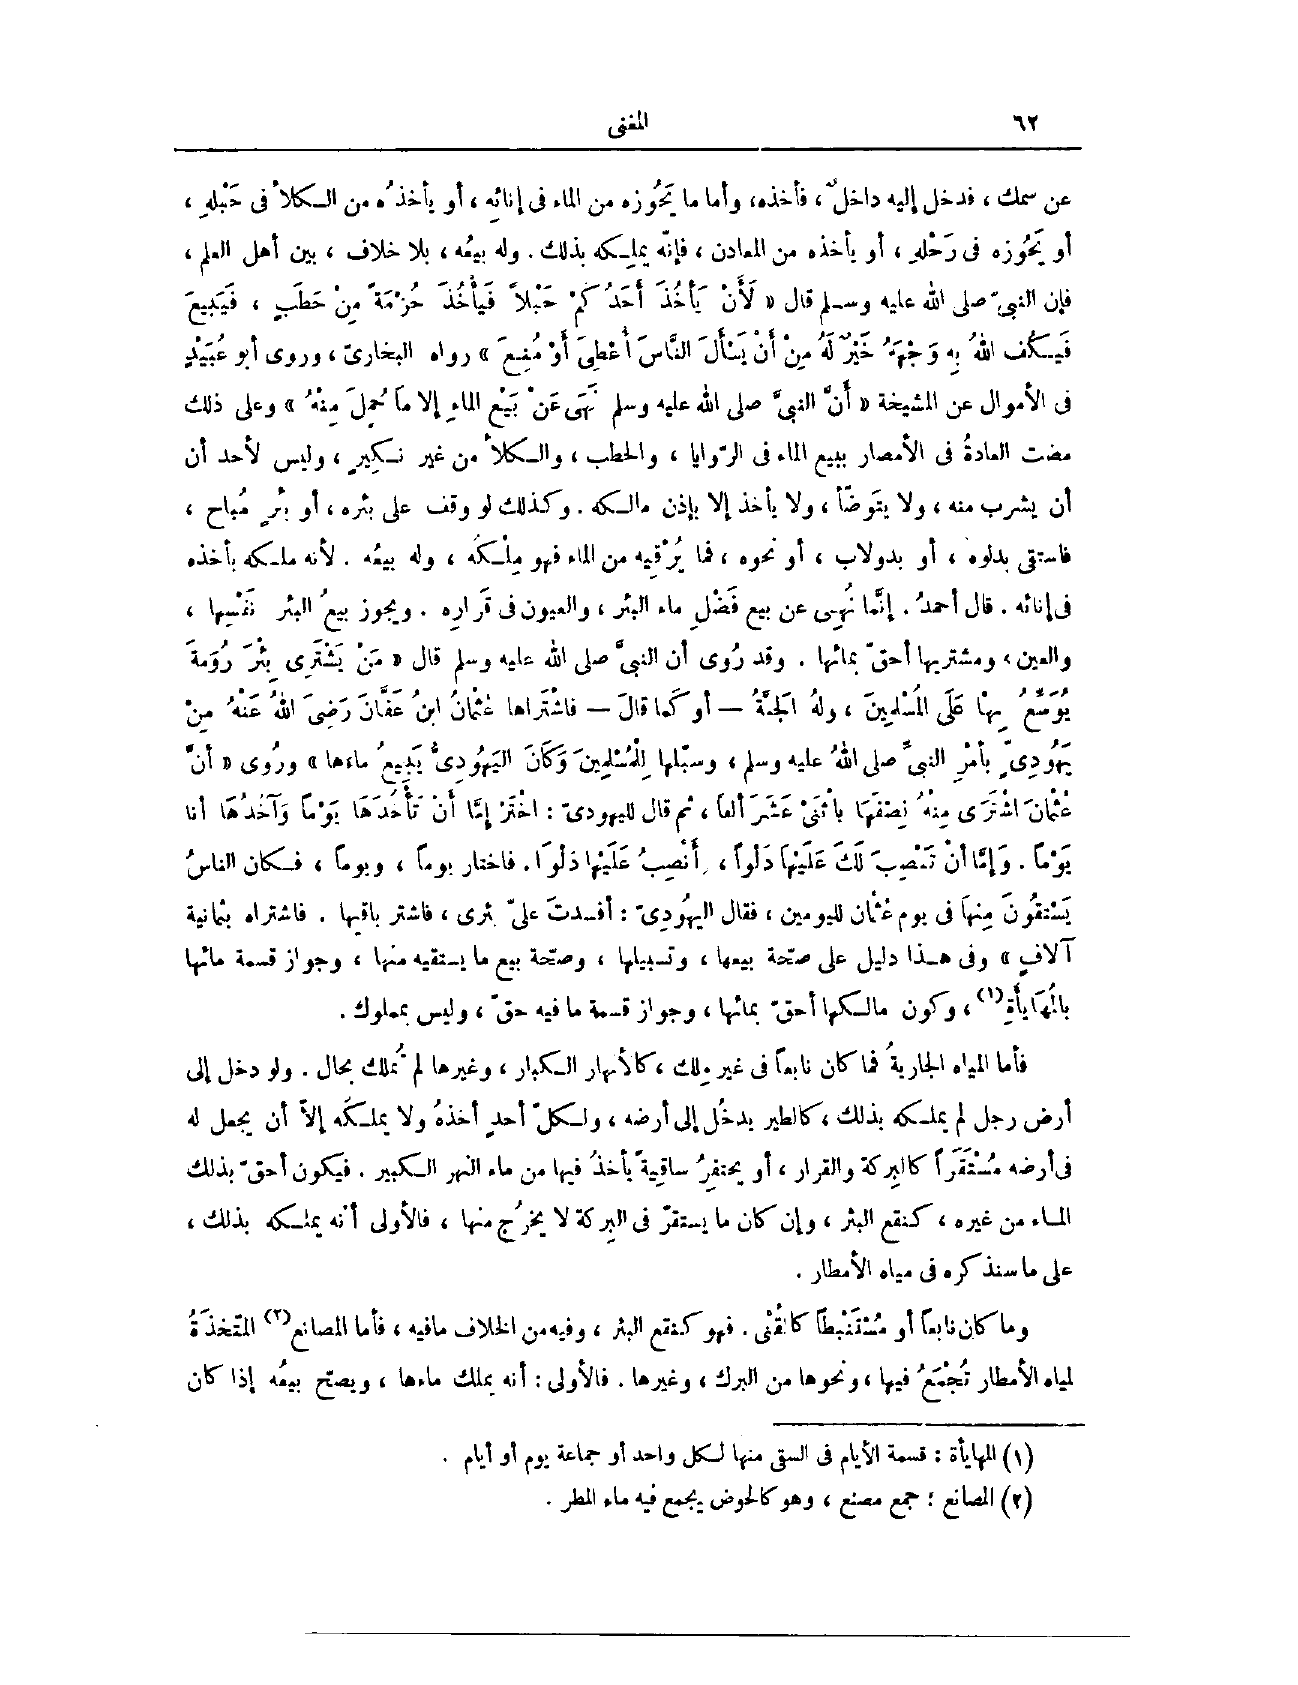 ٦٢
المغنى
عن سمك ، فدخل إليه داخلٌ ، فأخذه، وأما ما يَحُوزه من الماء فى إنائه ، أو يأخذُه من الكلأ فى حَبْلهِ ،
أو يَحُوزه فى رَحْلهِ ، أو يأخذه من المعادن ، فإنّه يملِكه بذلك . وله بيعُه ، بلا خلاف ، بين أهل العلم ،
فإن النبىّ صلى الله عليه وسلم قال « لَأَنْ يَأْخُذَ أَحَدُكمْ حَبْلاً فَيأْخُذَ حُزْمَةً مِنْ حَطَبٍ ، فَيَبِيعَ
فَيَكُف اللهُ بِهِ وَجْهَهُ خَيْرٌ لَهُ مِنْ أَنْ يَسْأَلَ النَّاسَ أُعْطِىَ أَوْ مُنِعَ » رواه البخارىّ ، وروى أبو عُبَيْدٍ
فى الأموال عن المشيخة « أَنَّ النبىَّ صلى الله عليه وسلم نَهَى عَنْ بَيْع الماءِ إلا ماَ حُمِلَ مِنْهُ » وعلى ذلك
مضت العادةُ فى الأمصار ببيع الماء فى الرّوايا ، والحطب ، والكلأ من غير نكِيرٍ ، وليس لأحد أن
أن يشرب منه ، ولا يتَوضّأ ، ولا يأخذ إلا بإذن مالكه . وكذلك لو وقف على بئره ، أو بئرٍ مُباح ،
فاستقى بدلوه ، أو بدولاب ، أو نحوه ، فما يُرْقيه من الماء فهو مِلْكُه ، وله بيعُه . لأنه ملكه بأخذه
فى إنائه . قال أحمدُ . إنَّما نُهِى عن بيع فَضْلِ ماء البئر ، والعيون فى قَراره . ويجوز بيعُ البئر نَفْسِها ،
والعين ، ومشتريها أحقّ بمائها . وقد رُوى أن النبىَّ صلى الله عليه وسلم قال « مَنْ يَشْتَرِى بِئْرَ رُومَةَ
يُوَسِّعُ بِهاَ عَلَى المُسْلِمِينَ ، ولهُ الَجنَّةُ — أو كَما قالَ — فاشْتَراها عُثْمانُ ابنُ عَفَّانَ رَضِىَ اللهُ عَنْهُ مِنْ
يَهُودِىّ بأمْرِ النبىِّ صلى اللهُ عليه وسلم ، وسبّلها لِلْمُسْلِمِينَ وَكَانَ اليَهُودِىُّ يَبِيعُ ماءها » ورُوى « أنَّ
عُثْمانَ اشْتَرَى مِنْهُ نِصْفَهَا باثْنَىْ عَشَرَ ألفاً ، ثم قال لليهودىّ : اخْتَرْ إمَّا أنْ تَأْخُذَهَا يَوْماً وَآخُذُهَا أنا
يَوْماً . وَإمَّا أنْ تَنْصِبَ لَكَ عَلَيْهاَ دَلْواً ، وأَنْصِبُ عَلَيْها ذلْوًا . فاختار يوماً ، ويوماً ، فكان الناسُ
يَسْتقُونَ مِنهاَ فى يوم عُثمان لليومين ، فقال اليهُودىّ : أفسدتَ علىّ بئرى ، فاشتر باقيها . فاشتراه بثمانية
آلافٍ » وفى هذا دليل على صحّة بيعها ، وتسبيلها ، وصحّة بيع ما يستقيه منها ، وجواز قسمة مائها
بالْمُهَايأَةِ(١) ، وكون مالكها أحقّ بمائها ، وجواز قسمة ما فيه حقّ ، وليس بمملوك .
فأما المياه الجاريةُ فما كان نابعاً فى غير ملك ، كالأنهار الكبار ، وغيرها لم تُملك بحال . ولو دخل إلى
أرض رجل لم يملكه بذلك ، كالطير يدخُل إلى أرضه ، ولكلّ أحدٍ أخذهُ ولا يملكُه إلاّ أن يجعل له
فى أرضه مُسْتَقَراً كالبِركة والقرار ، أو يحتفِرُ ساقيةً يأخذُ فيها من ماء النهر الكبير . فيكون أحقّ بذلك
الماء من غيره ، كنقع البئر ، وإن كان ما يستقرّ فى البِركة لا يخرُج منها ، فالأولى أنه يملكه بذلك ،
على ما سنذكره فى مياه الأمطار .
وما كان نابعاً أو مُسْتَنْبطاً كالقُنْى . فهو كنقع البئر ، وفيه من الخلاف مافيه ، فأما المصانع(٢) المتّخذَةُ
لمياه الأمطار تُجْمَعُ فيها ، ونحوها من البرك ، وغيرها . فالأولى : أنه يملك ماءها ، ويصحّ بيعُه إذا كان
(١) المهايأة : قسمة الأيام فى السقى منها لكل واحد أو جماعة يوم أو أيام .
(٢) المصانع : جمع مصنع ، وهو كالحوض يجمع فيه ماء المطر .